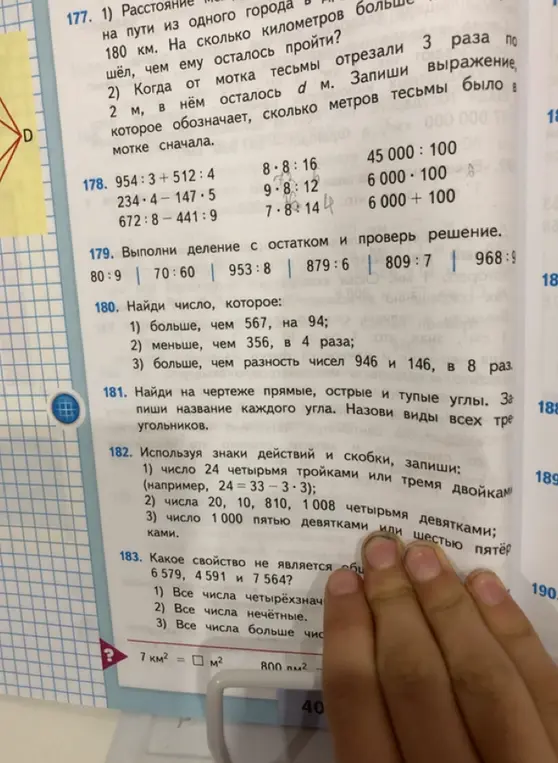 177. 1) Расстояние
на пути из одного города в
180 км. На сколько километров больше
шёл, чем ему осталось пройти?
2) Когда от мотка тесьмы отрезали 3 раза по
2 м, в нём осталось d м. Запиши выражение,
которое обозначает, сколько метров тесьмы было в
мотке сначала.
178. 954 : 3 + 512 : 4 8 · 8 : 16 45 000 : 100
234 · 4 − 147 · 5 9 · 8 : 12 6 000 · 100
672 : 8 − 441 : 9 7 · 8 : 14 4 6 000 + 100
179. Выполни деление с остатком и проверь решение.
80 : 9 | 70 : 60 | 953 : 8 | 879 : 6 | 809 : 7 | 968 : 9
180. Найди число, которое:
1) больше, чем 567, на 94;
2) меньше, чем 356, в 4 раза;
3) больше, чем разность чисел 946 и 146, в 8 раз
181. Найди на чертеже прямые, острые и тупые углы. За
пиши название каждого угла. Назови виды всех тре
угольников.
182. Используя знаки действий и скобки, запиши:
1) число 24 четырьмя тройками или тремя двойкам
(например, 24 = 33 − 3 · 3);
2) числа 20, 10, 810, 1 008 четырьмя девятками;
3) число 1 000 пятью девятками или шестью пятёр
ками.
183. Какое свойство не является
6 579, 4 591 и 7 564?
1) Все числа
2) Все числа нечётные.
3) Все числа больше
? 7 км² = □ м² 800
40
D
18
18
188
189
190